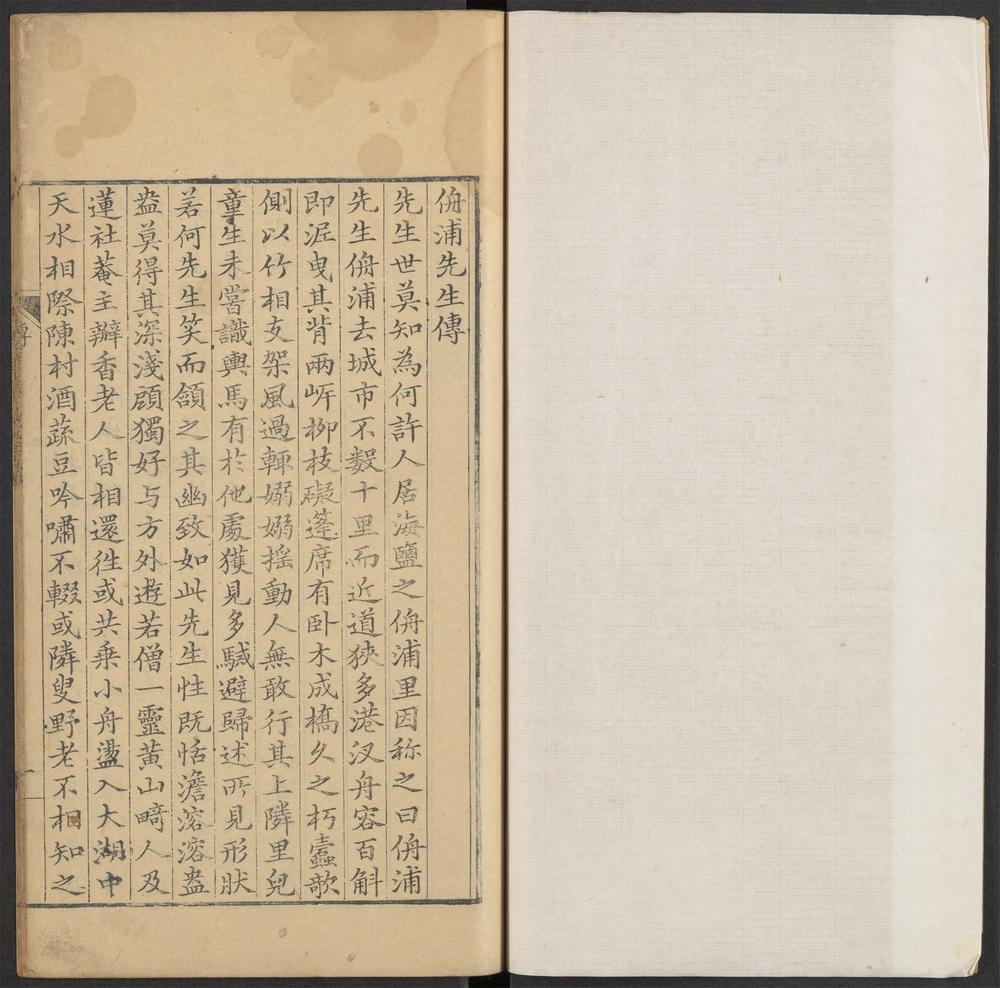 侜浦先生傳
先生世莫知為何許人居海鹽之侜浦里因称之曰侜浦
先生侜浦去城市不数十里而近道狹多港汊舟容百斛
即泥曳其背兩岍柳枝礙篷席有卧木成橋久之朽蠹欹
側以竹相支架風過輙嫋嫋搖動人無敢行其上隣里兒
童生未嘗識輿馬有於他處獲見多駴避歸述所見形狀
若何先生笑而頷之其幽致如此先生性既恬澹溶溶盎
盎莫得其深淺頋獨好与方外遊若僧一靈黃山畸人及
蓮社菴主瓣香老人皆相還徃或共乗小舟盪入大湖中
天水相際陳村酒蔬豆吟嘯不輟或隣叟野老不相知之
傳